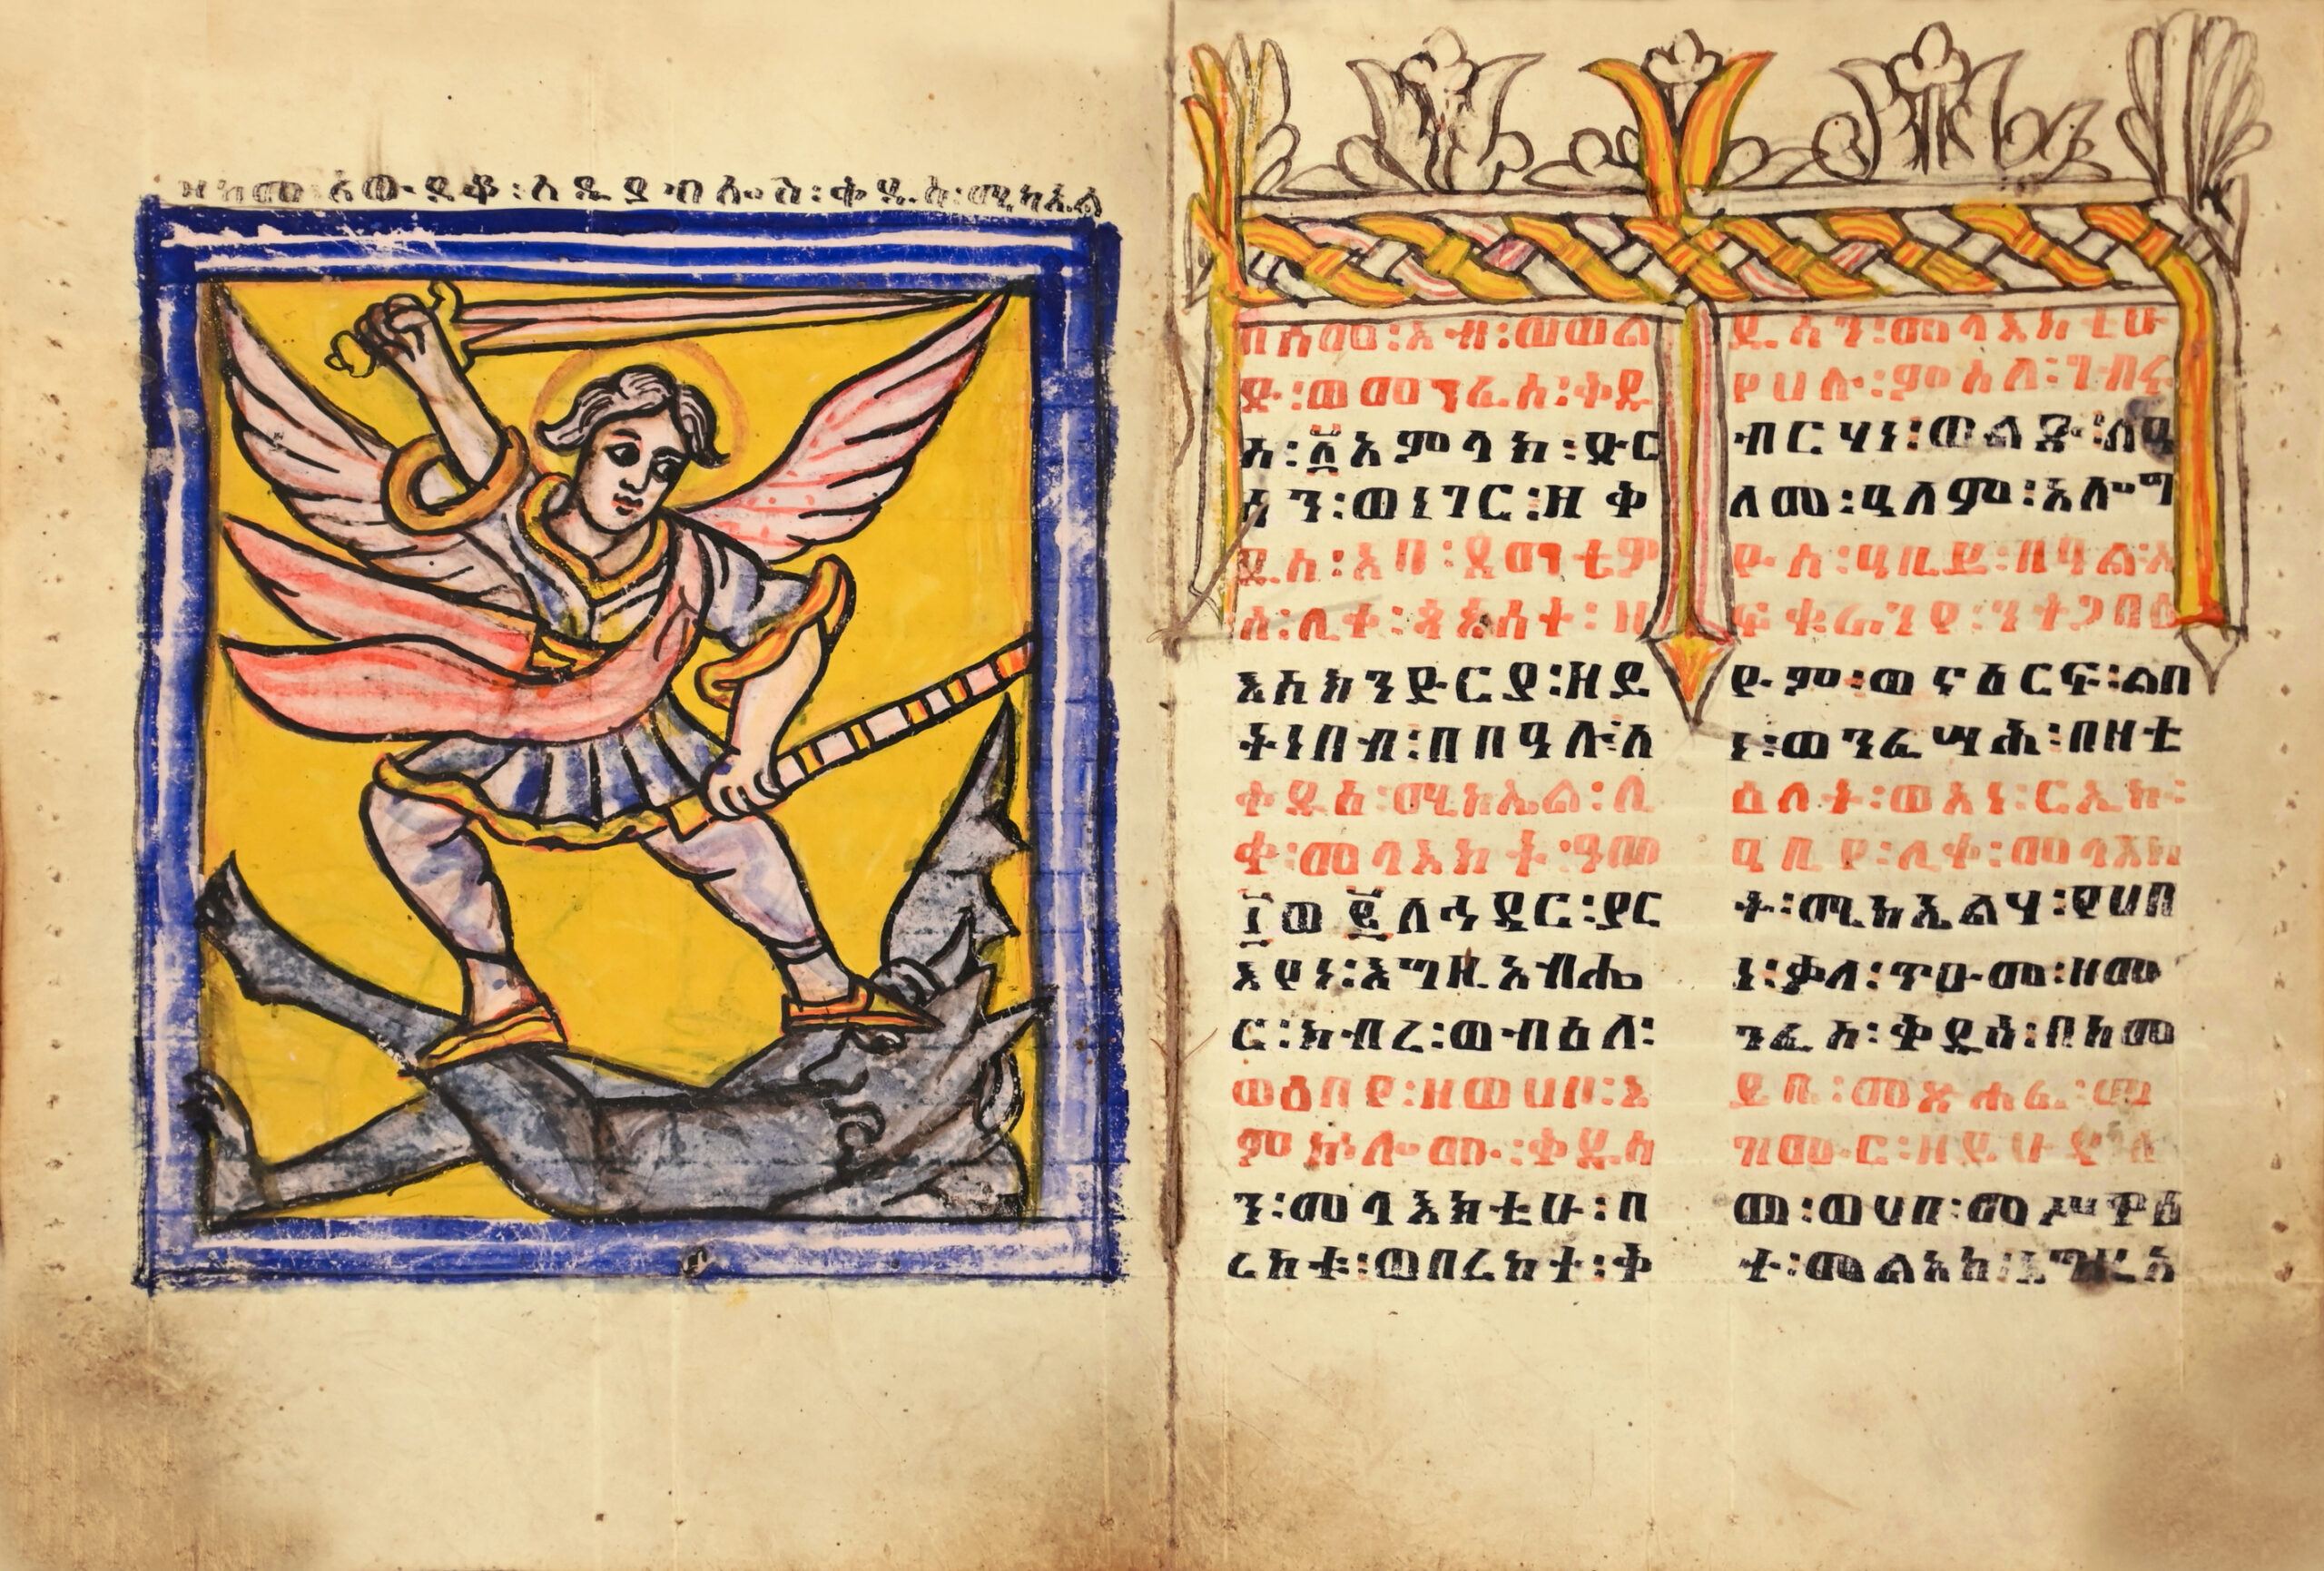 ዘከመ፡አውደቆ፡ለዲያብሎስ፡ቅዱስ፡ሚካኤል
በስመ፡አብ፡ወወል
ድ፡ወመንፈስ፡ቅዱ
ስ፡፩አምላክ፡ድር
ሳን፡ወነገር፡ዘቀ
ዲስ፡አባ፡ደማቴዎ
ስ፡ሊቀ፡ጳጳሳት፡ዘ
እስክንድርያ፡ዘደ
ትነበብ፡በበዓሉ፡ለ
ቅዱስ፡ሚካኤል፡ሊ
ቀ፡መላእክት፡ዓመ
፲ወ፪ለኅዳር፡ያር
እየነ፡እግዚአብሔ
ር፡ክብረ፡ወብዕለ፡
ወዕበየ፡ዘወሀቦ፡እ
ምኵሎሙ፡ቅዱሳ
ን፡መላእክቲሁ፡በ
ረከቱ፡ወበረከተ፡ቅ
ዱሳን፡መላእክቲሁ
የሀሉ፡ምስለ፡ገብሩ
ብርሃነ፡ወልድ፡ለዓ
ለመ፡ዓለም፡አሎግ
ዮስ፡ዓቢይ፡በዓል፡አ
ፍቁራንየ፡ንትጋባዕ
ዮም፡ወናዕርፍ፡ልበ
ነ፡ወንፈሣሕ፡በዛቲ
ዕለት፡ወእነ፡ርኢክ፡
ዓቢየ፡ሊቀ፡መላእክ
ት፡ሚክኤልሃ፡የሀበ
ነ፡ቃለ፡ጥዑመ፡ዘመ
ንፈስ፡ቅዱስ፡በከመ
ይቤ፡መጽሐፈ፡መ
ዝሙር፡
ሙ፡ወሀቦ፡መሥዋዕ
ት፡መልአከ፡እግዚአ